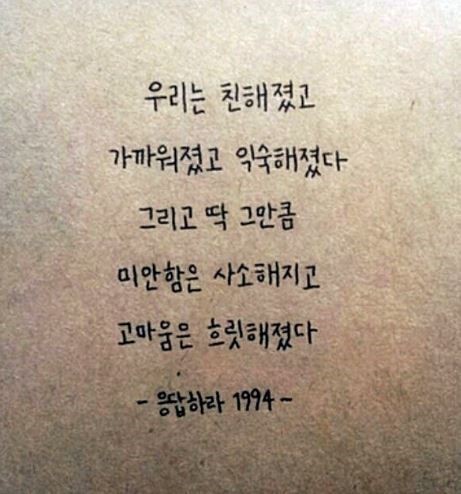 우리는 친해졌고
가까워졌고 익숙해졌다
그리고 딱 그만큼
미안함은 사소해지고
고마움은 흐릿해졌다
- 응답하라 1994 -